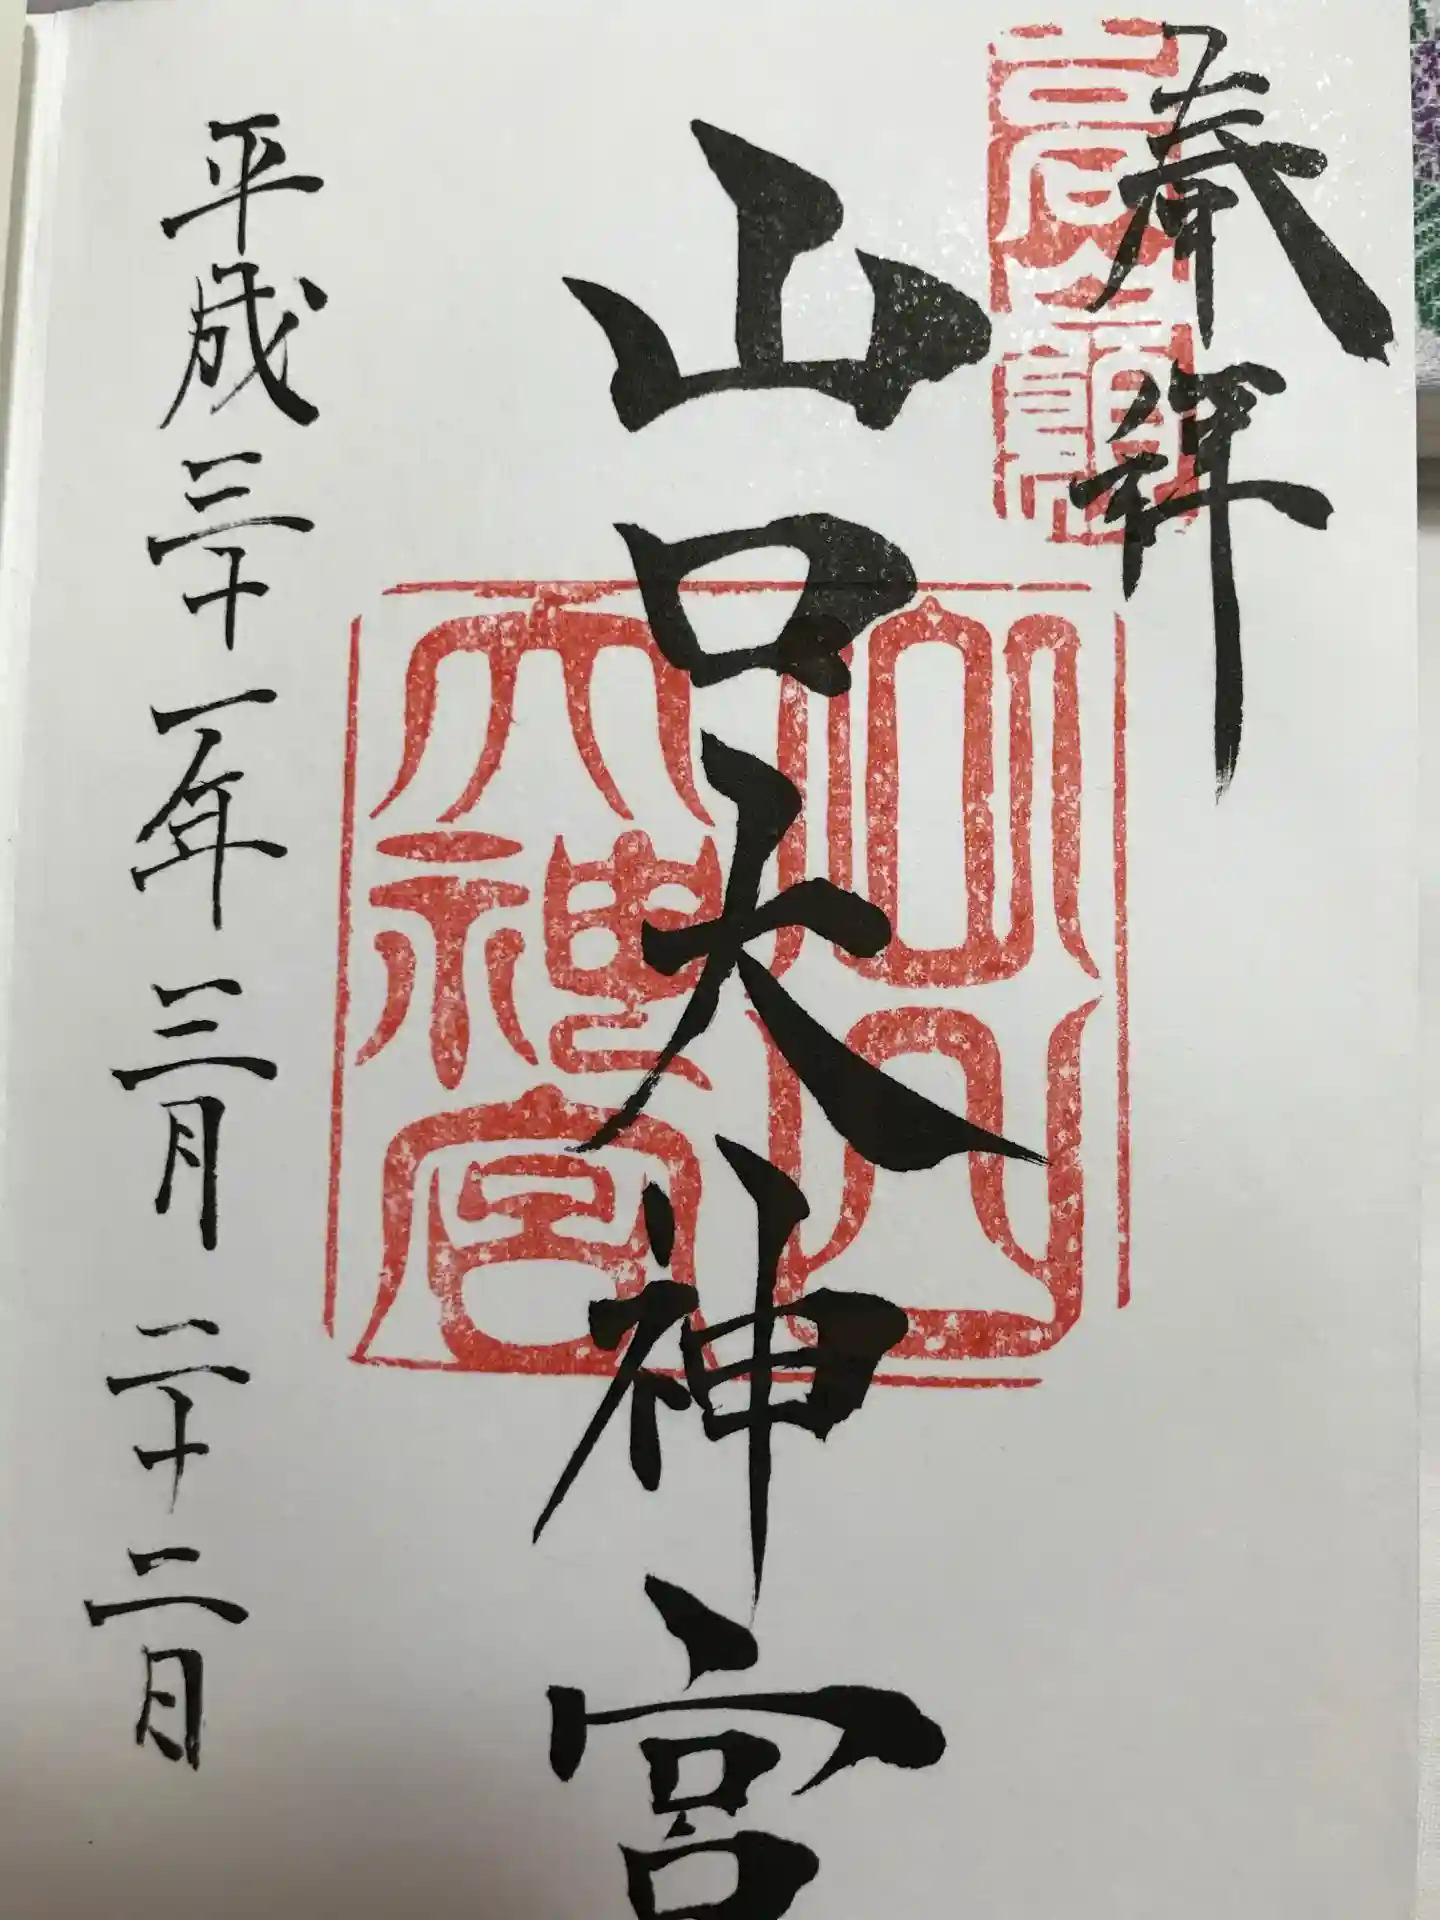 奉拝
山口大神宮
山口大神宮
平成三十一年三月二十二日